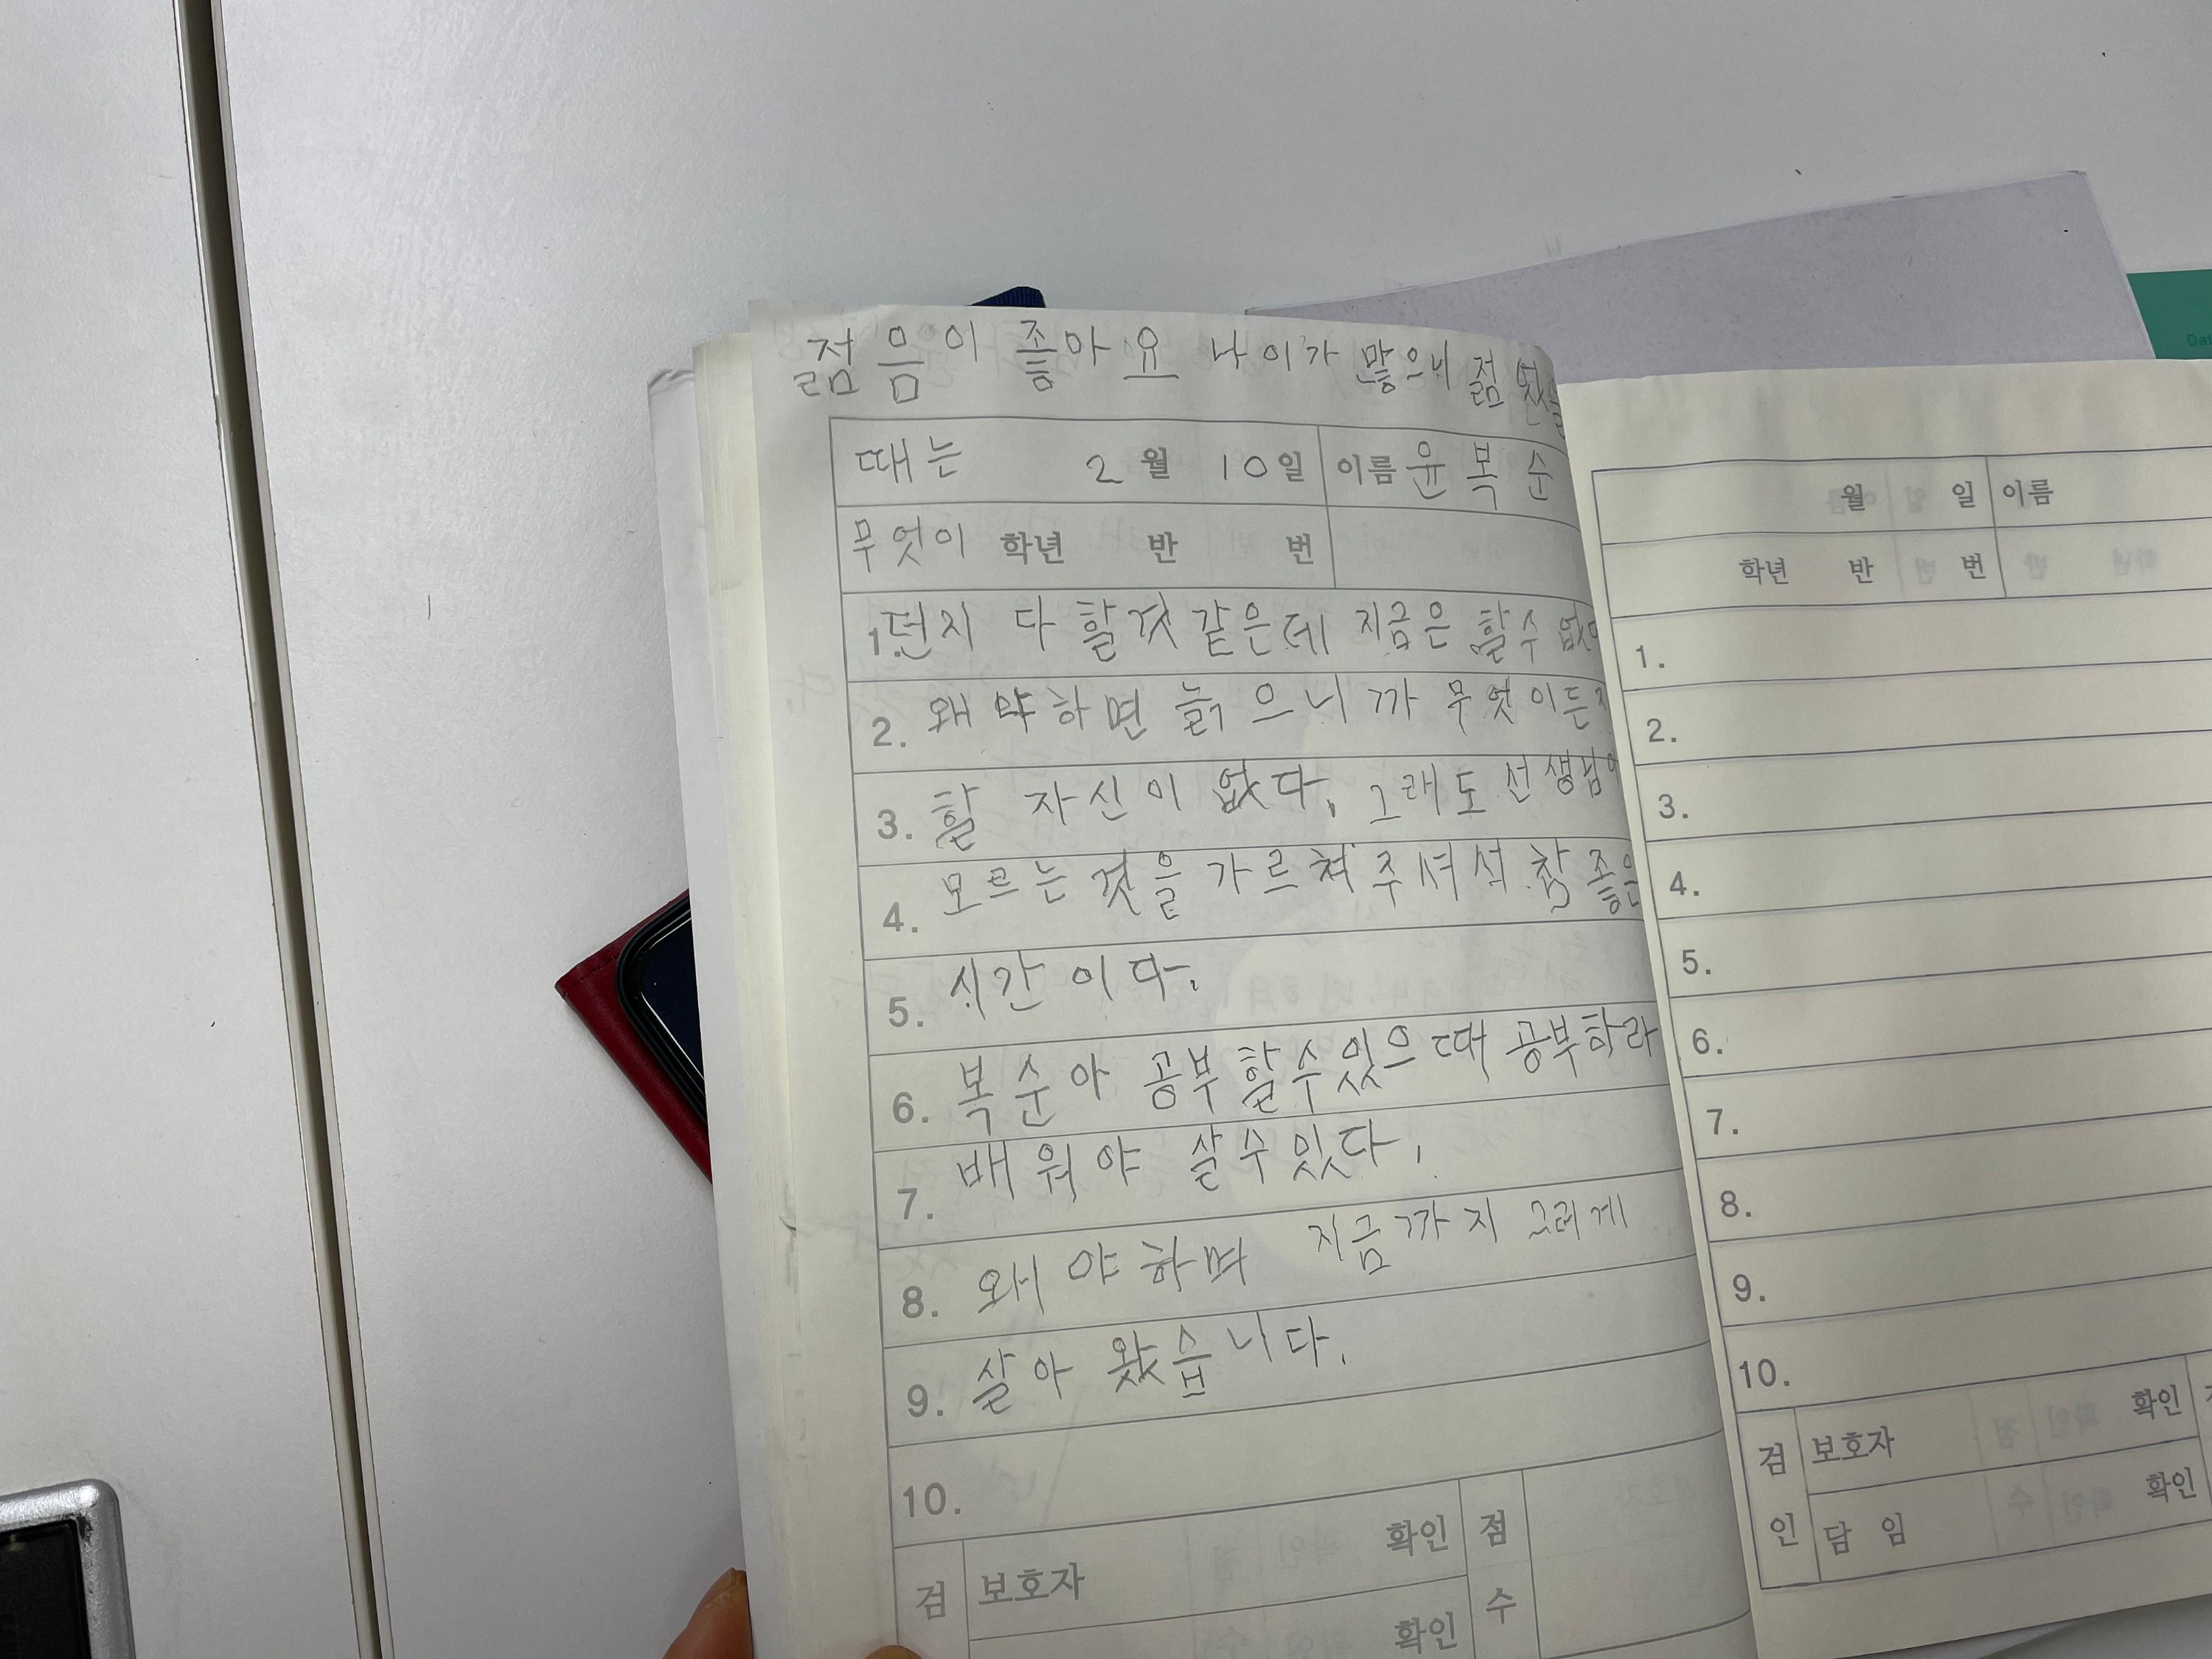 젊음이 좋아요 나이가 많으니 젊었을
때는 2월 10일 이름 윤복순
무엇이 학년 반 번
1. 던지 다 할것 같은데 지금은 할수
2. 왜야하면 늙으니까 무엇이든지
3. 할 자신이 없다. 그래도 선생님이
4. 모르는 것을 가르쳐 주셔서 참 좋은
5. 시간이다.
6. 복순아 공부할수있으때 공부하라
7. 배워야 살수있다.
8. 왜야하며 지금까지 그러게
9. 살아 왔습니다.
10.
검 보호자 확인 점
확인 수
월 일 이름
학년 반 번
1.
2.
3.
4.
5.
6.
7.
8.
9.
10.
검 보호자 확인
인 담 임 확인